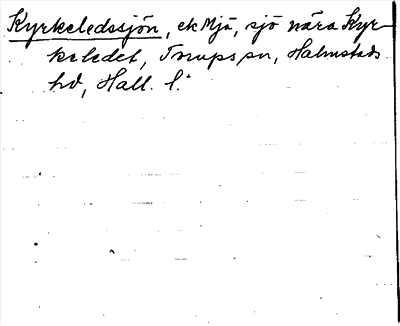 Kyrkeledssjön, ek Mjä, sjö nära Kyr-
keledet, Snups sn, Halmstads
hd, Hall. l.